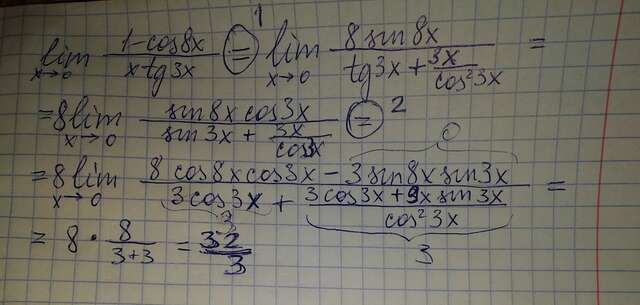 lim x→0 (1-cos8x)/(x tg3x) = 1 lim x→0 (8 sin8x)/(tg3x + 3x/cos²3x) =
= 8 lim x→0 (sin8x cos3x)/(sin3x + 3x/cos3x) = 2
= 8 lim x→0 (8 cos8x cos3x - 3 sin8x sin3x)/(3 cos3x + (3 cos3x + 9x sin3x)/cos²3x) =
0
3 3
= 8 · 8/(3+3) = 32/3